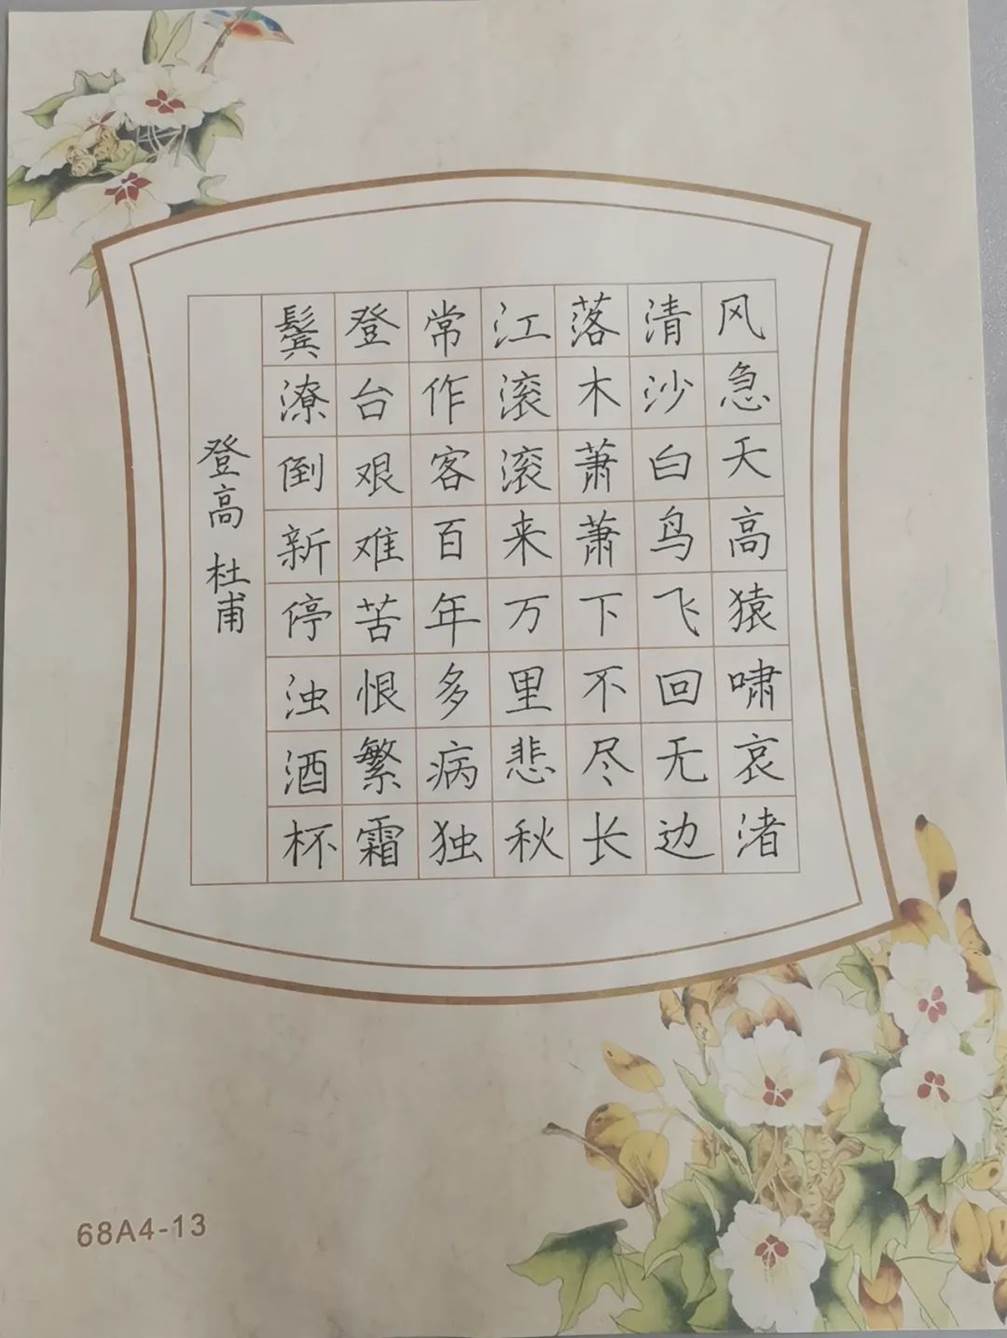 风急天高猿啸哀渚
清沙白鸟飞回无边
落木萧萧下不尽长
江滚滚来万里悲秋
常作客百年多病独
登台艰难苦恨繁霜
鬓潦倒新停浊酒杯
登高 杜甫
68A4-13